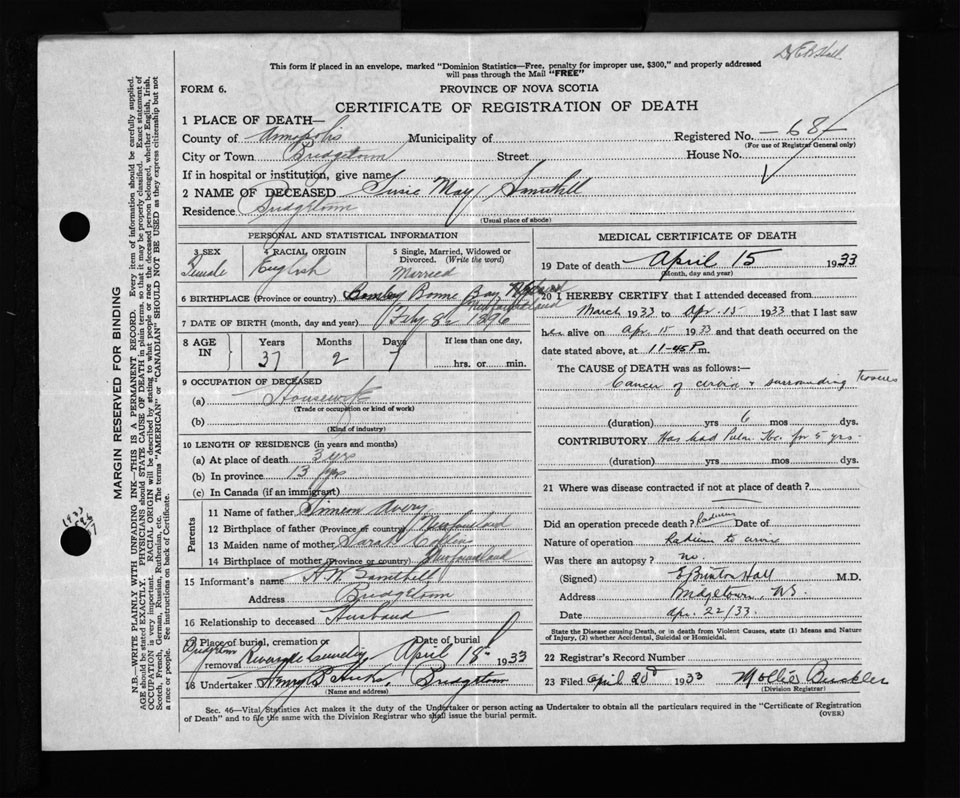 This form if placed in an envelope, marked "Dominion Statistics—Free, penalty for improper use, $300," and properly addressed
will pass through the Mail "FREE"
FORM 6.
PROVINCE OF NOVA SCOTIA
CERTIFICATE OF REGISTRATION OF DEATH
1 PLACE OF DEATH—
County of Annapolis Municipality of Registered No. 68
(For use of Registrar General only)
City or Town Bridgetown Street House No.
If in hospital or institution, give name
2 NAME OF DECEASED Susie May
Residence Bridgetown
(Usual place of abode)
PERSONAL AND STATISTICAL INFORMATION
3 SEX
Female
4 RACIAL ORIGIN
English
5 Single, Married, Widowed or
Divorced. (Write the word)
Married
6 BIRTHPLACE (Province or country) Bonne Bay
Newfoundland
7 DATE OF BIRTH (month, day and year) 1896
8 AGE
IN
Years
37
Months
2
Days
7
If less than one day,
hrs. or min.
9 OCCUPATION OF DECEASED
(a) Housewife
(Trade or occupation or kind of work)
(b)
(Kind of industry)
10 LENGTH OF RESIDENCE (in years and months)
(a) At place of death 3 yrs
(b) In province 13 yrs
(c) In Canada (if an immigrant)
Parents
11 Name of father Simeon Avery
12 Birthplace of father (Province or country) Newfoundland
13 Maiden name of mother Sarah Collins
14 Birthplace of mother (Province or country) Newfoundland
15 Informant's name
Address Bridgetown
16 Relationship to deceased Husband
17 Place of burial, cremation or
removal Bridgetown Riverside Cemetery
Date of burial
April 18 1933
18 Undertaker Bridgetown
(Name and address)
MEDICAL CERTIFICATE OF DEATH
19 Date of death April 15 1933
(Month, day and year)
20 I HEREBY CERTIFY that I attended deceased from
March 1933 to Apr. 15 1933 that I last saw
her alive on Apr. 15 1933 and that death occurred on the
date stated above, at 11-45 P m.
The CAUSE of DEATH was as follows:—
Cancer of & surrounding
(duration) yrs 6 mos dys.
CONTRIBUTORY Has had for 5 yrs.
(duration) yrs mos dys.
21 Where was disease contracted if not at place of death?
Did an operation precede death? Radium Date of
Nature of operation Radium to
Was there an autopsy? no.
(Signed) Hall M.D.
Address Bridgetown, N.S.
Date Apr. 22/33.
State the Disease causing Death, or in death from Violent Causes, state (1) Means and Nature
of Injury, (2) whether Accidental, Suicidal or Homicidal.
22 Registrar's Record Number
23 Filed April 1933 Mollie
(Division Registrar)
Sec. 46—Vital Statistics Act makes it the duty of the Undertaker or person acting as Undertaker to obtain all the particulars required in the "Certificate of Registration
of Death" and to file the same with the Division Registrar who shall issue the burial permit.
(OVER)
MARGIN RESERVED FOR BINDING
N.B.—WRITE PLAINLY WITH UNFADING INK—THIS IS A PERMANENT RECORD. Every item of information should be carefully supplied.
AGE should be stated EXACTLY. PHYSICIANS should STATE CAUSE OF DEATH in plain terms, so that it may be properly classified. Exact statement of
OCCUPATION is very important. RACIAL ORIGIN will be described by stating to what people or race the deceased person belonged, whether English, Irish,
Scotch, French, German, Russian, Ruthenian, etc. The terms "AMERICAN" or "CANADIAN" SHOULD NOT BE USED as they express citizenship but not
a race or people. See instructions on back of Certificate.